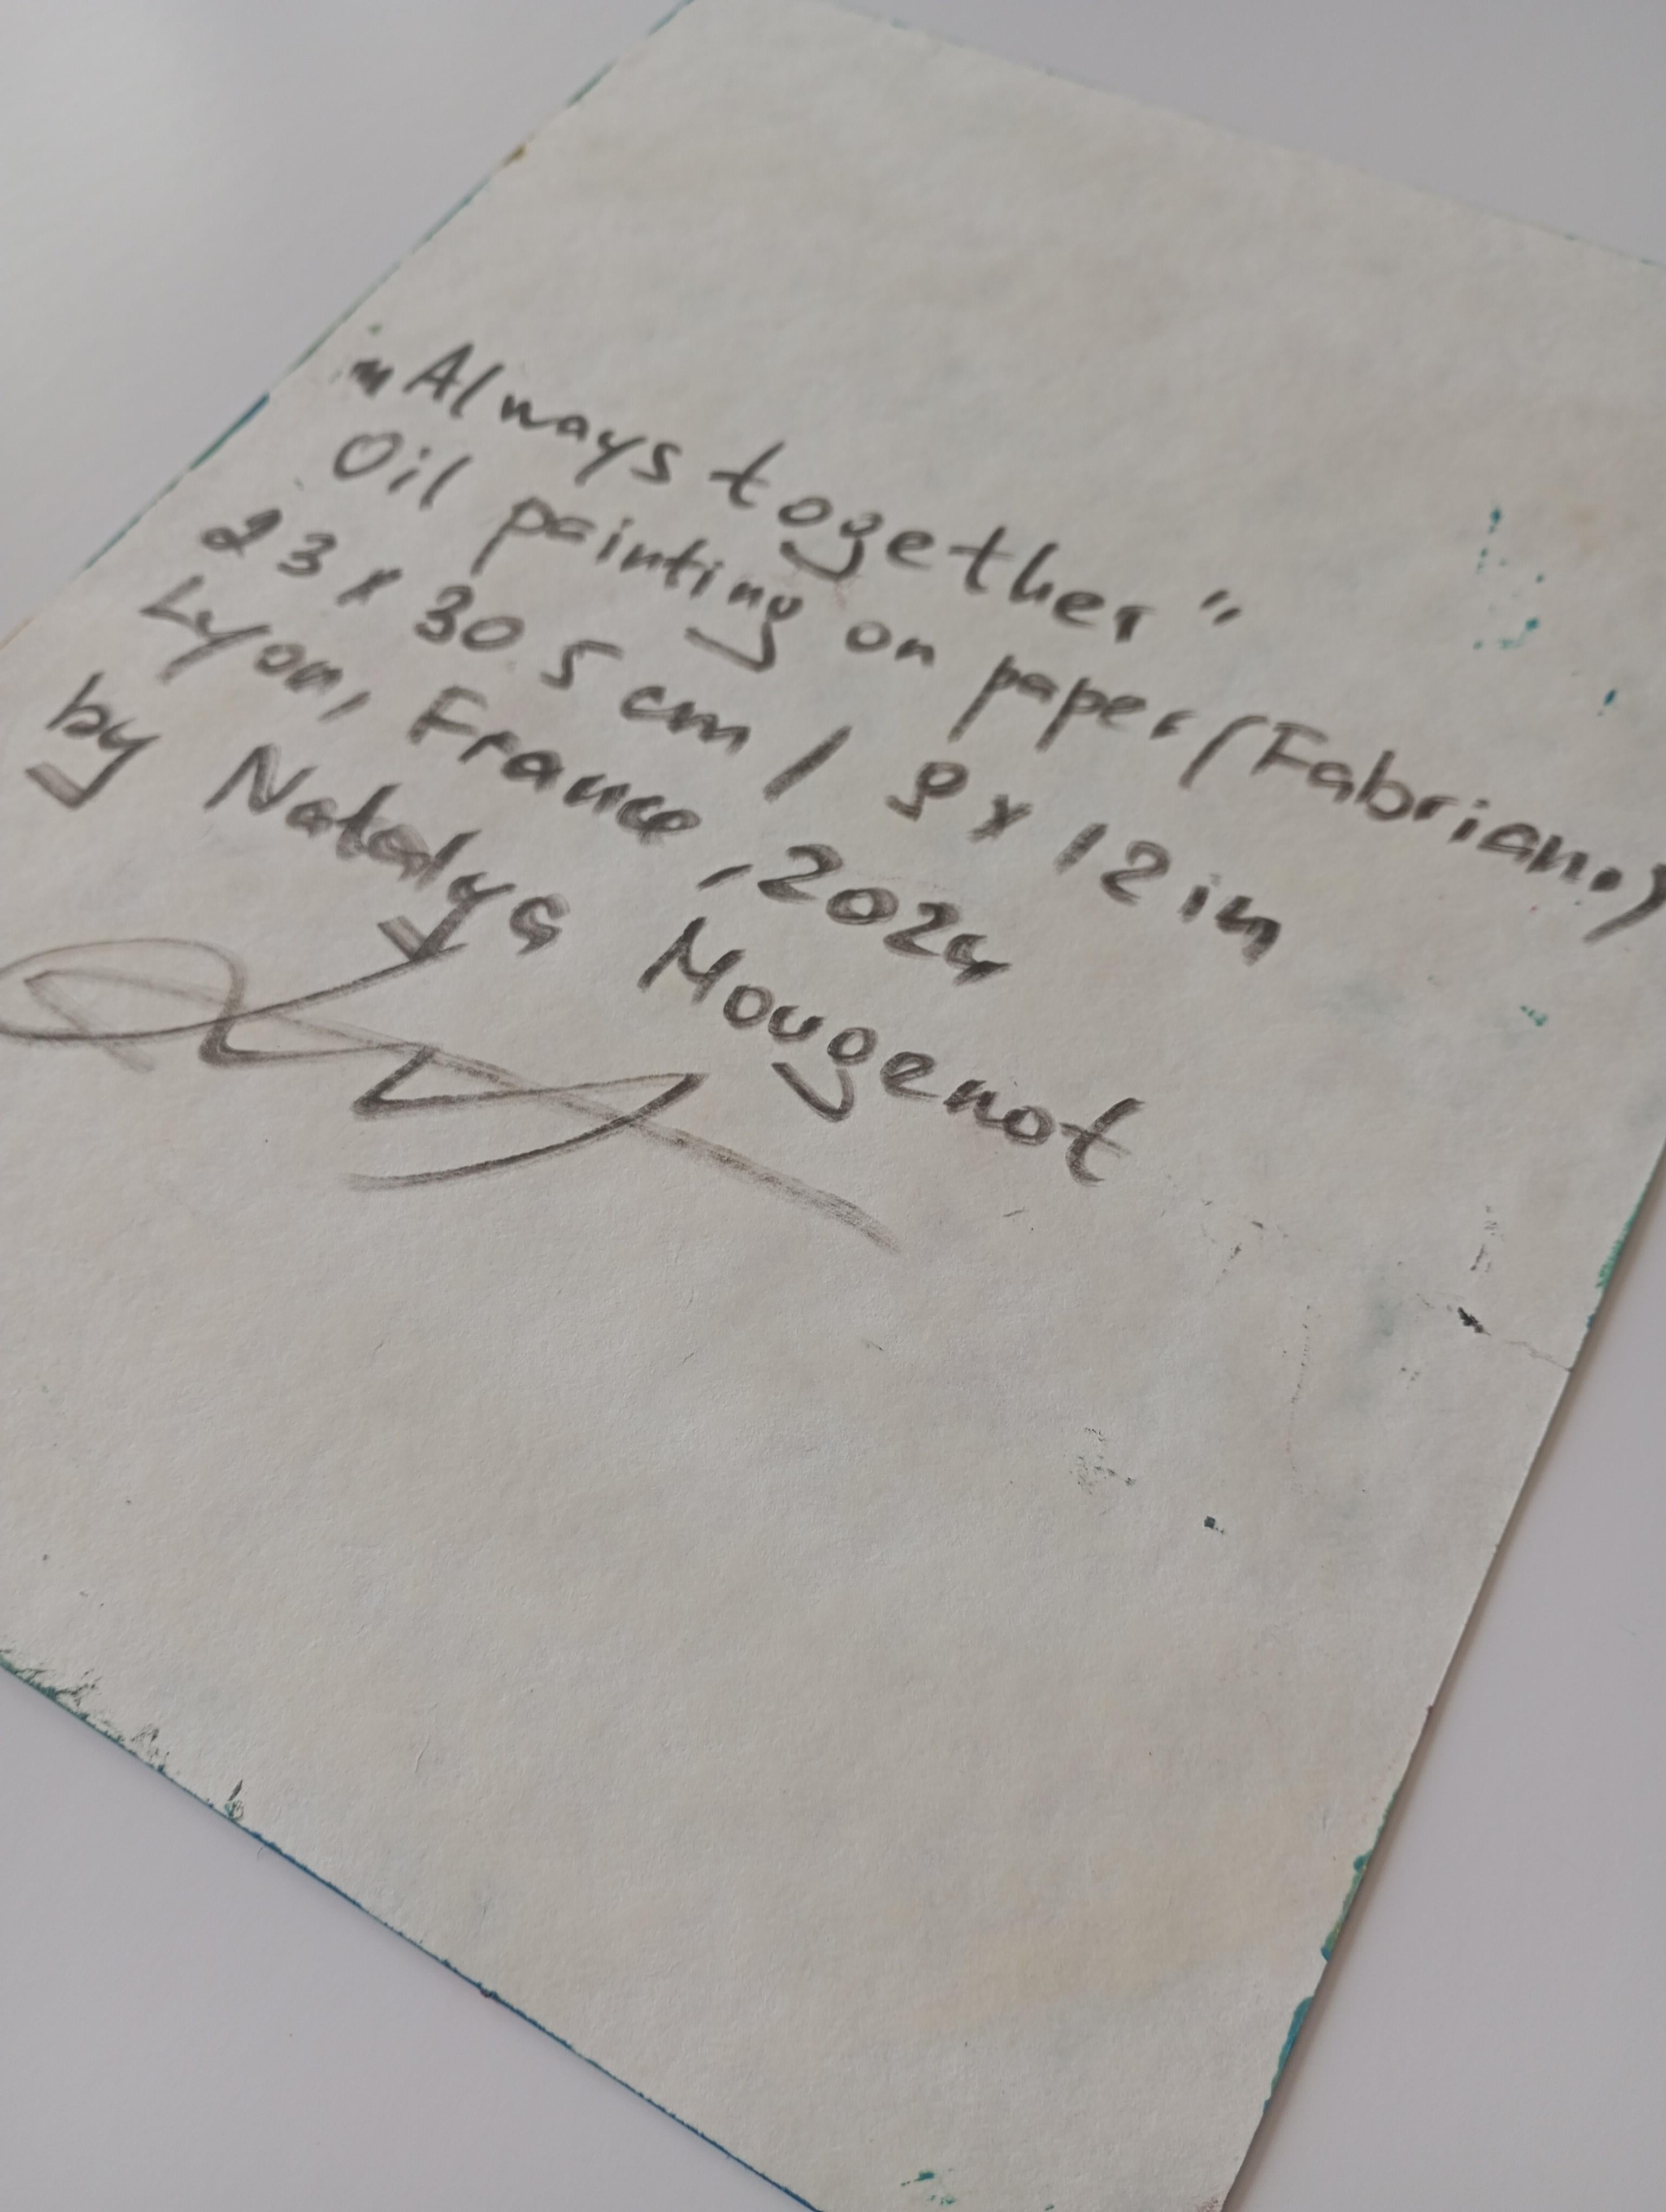 „Always together"
Oil painting on paper (Fabriano)
23 x 30.5 cm / 9 x 12 in
Lyon, France, 2024
by Natalya Mougenot